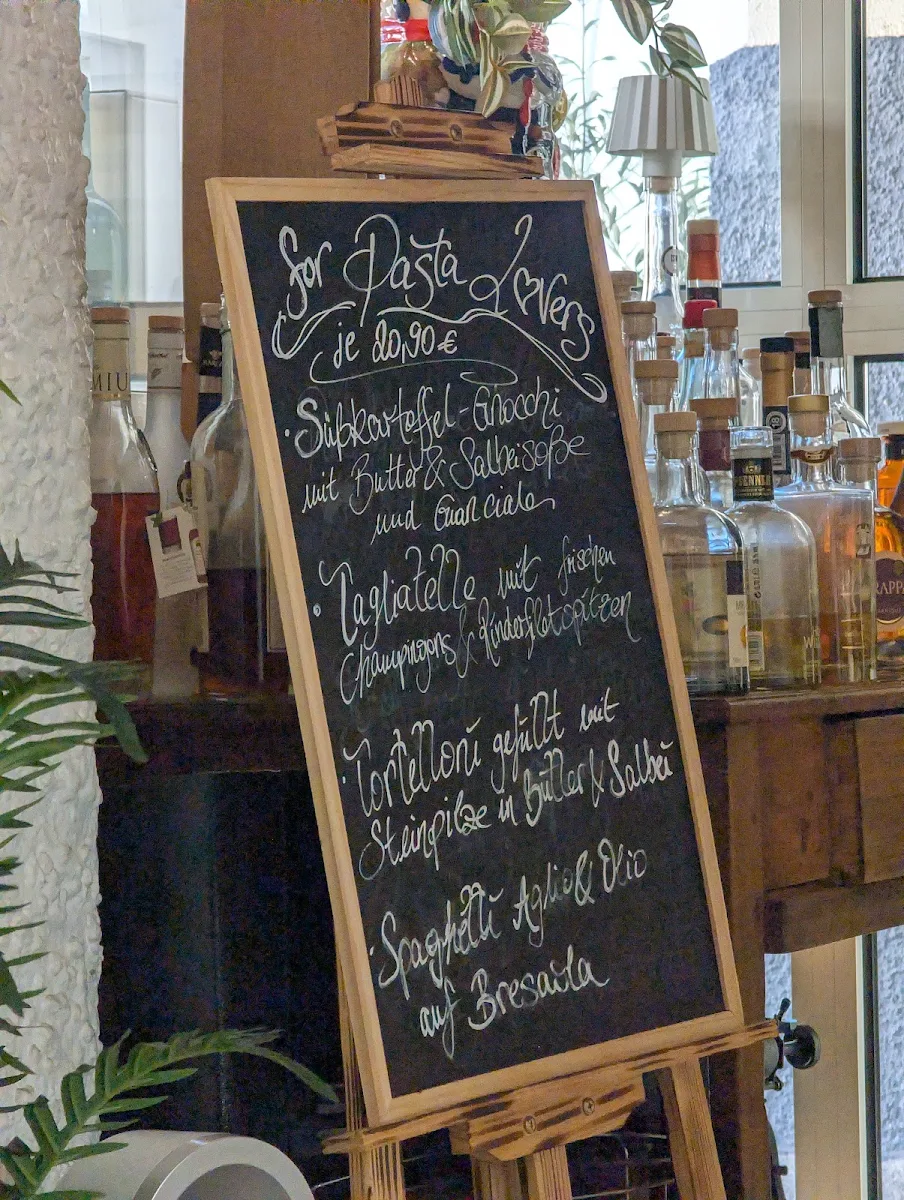 for Pasta Lovers
je 20,90 €
· Süßkartoffel-Gnocchi
mit Butter & Salbeisoße
und Guanciale
· Tagliatelle mit frischen
Champingons & Rinderfiletspitzen
· Tortelloni gefüllt mit
Steinpilze in Butter & Salbei
· Spaghetti Aglio & Olio
auf Bresaola
MIU
RAPPA